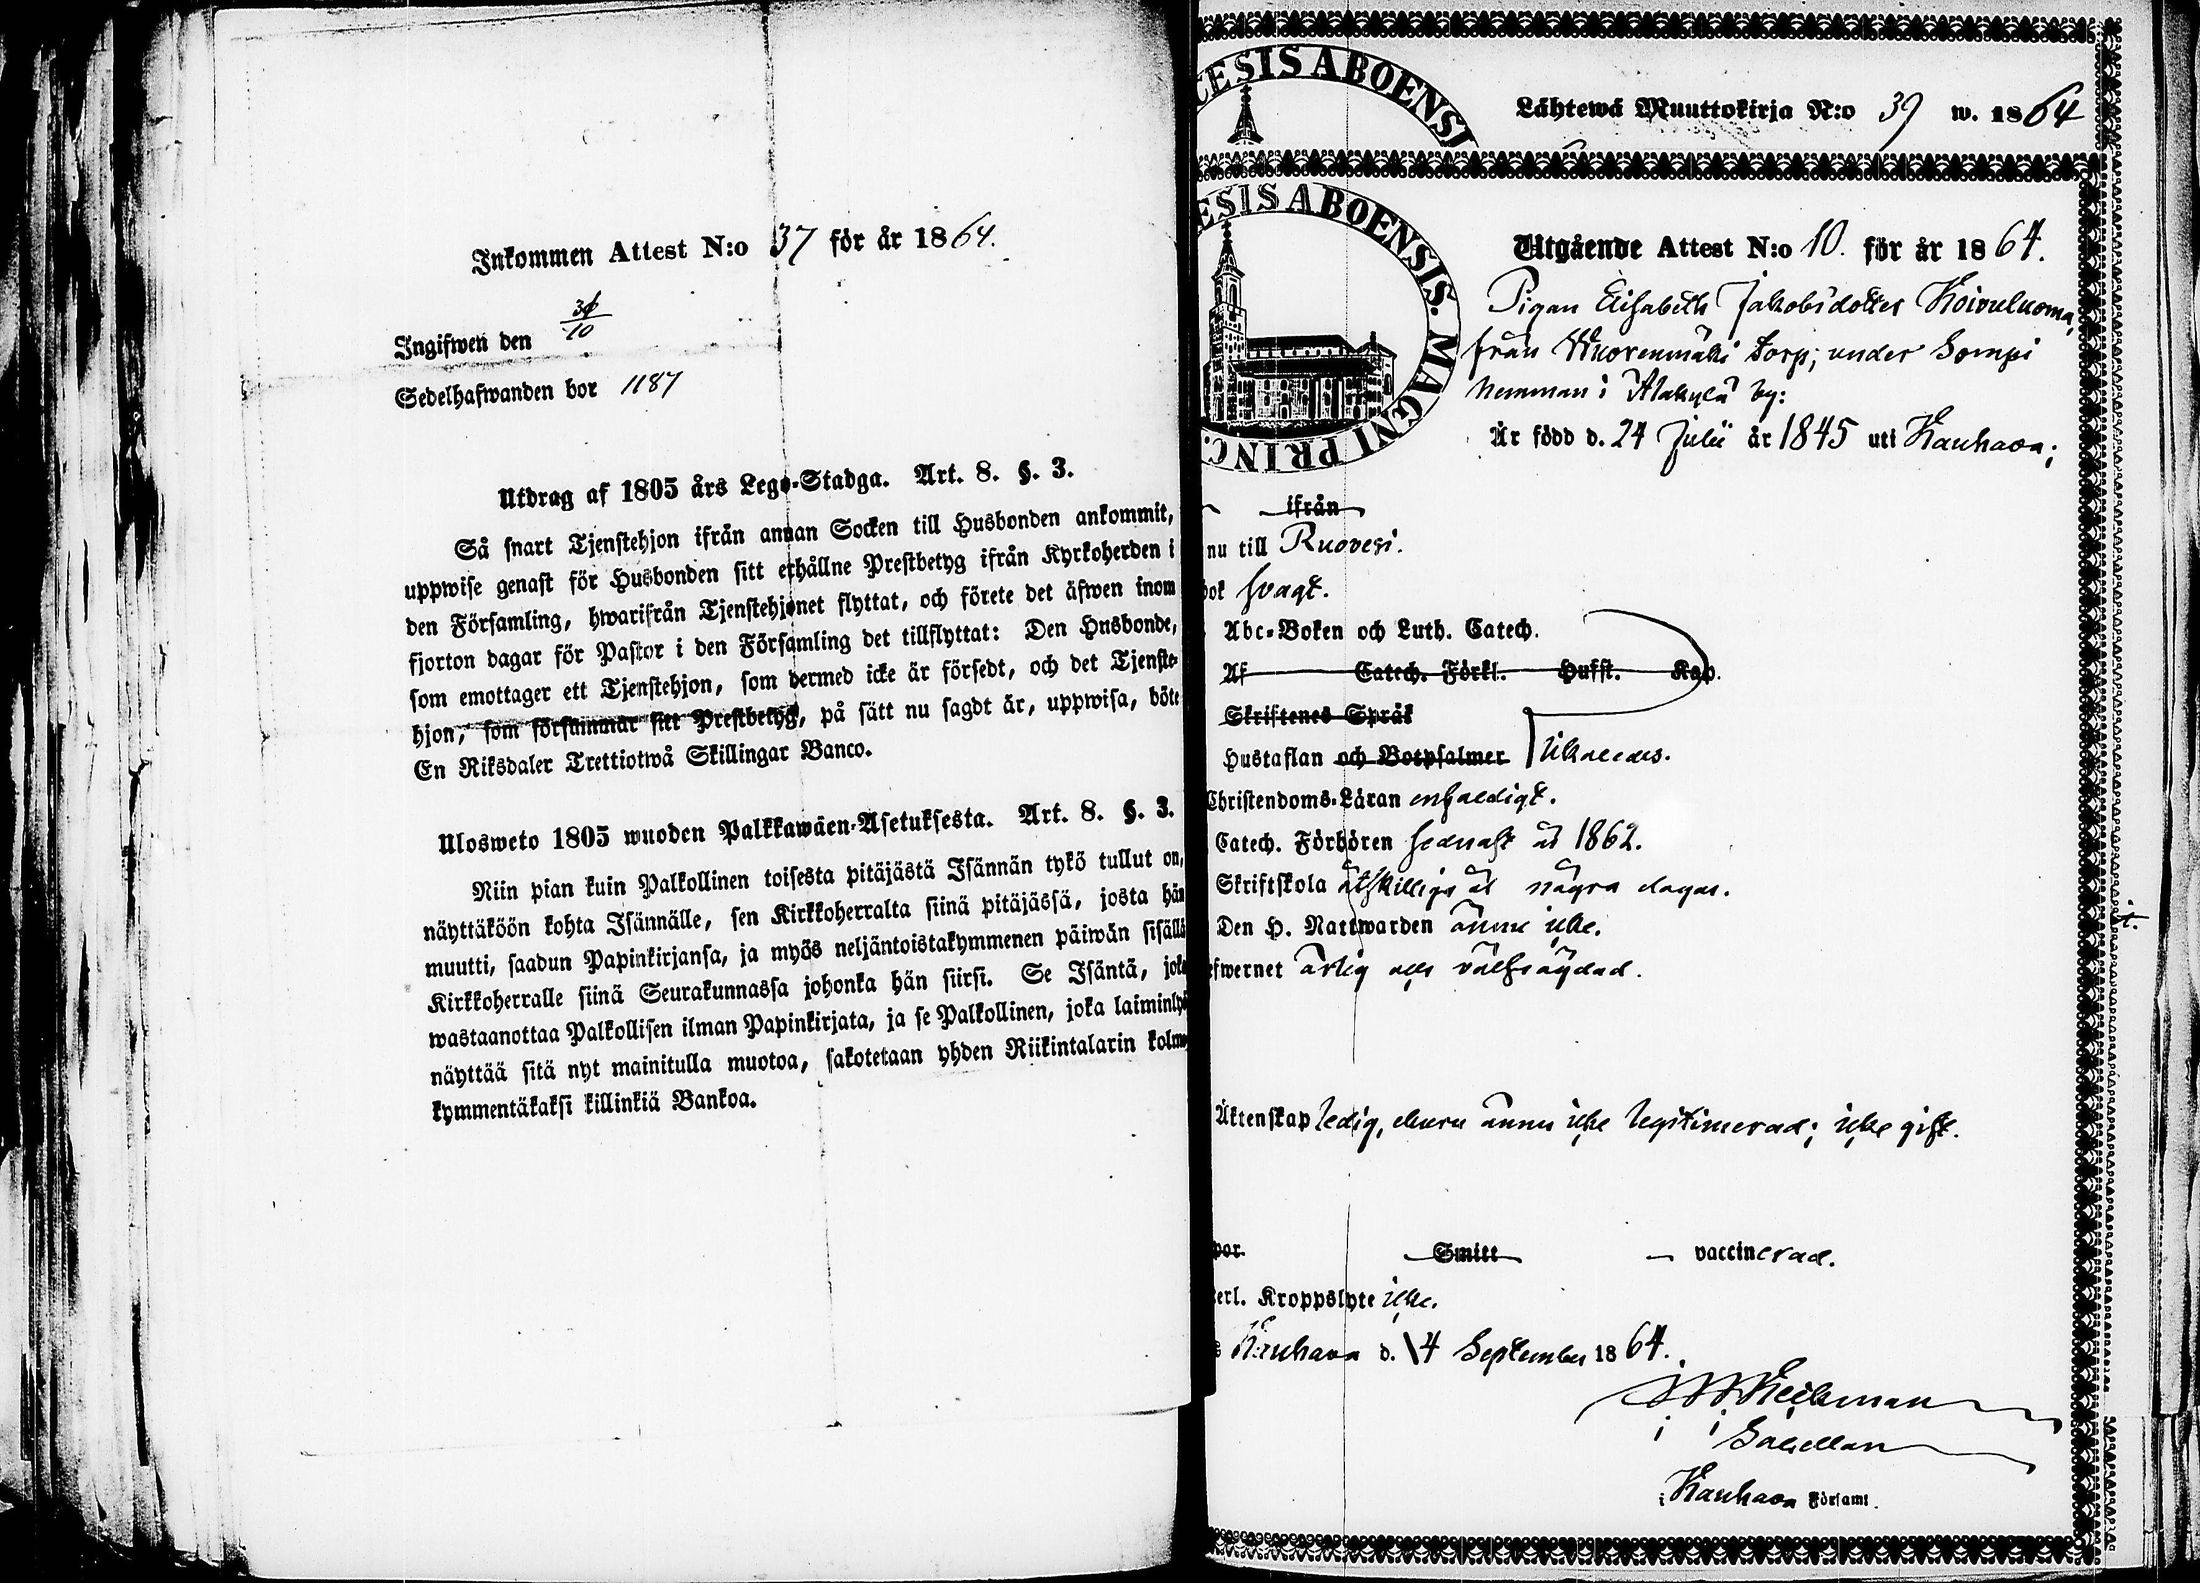 Inkommen Attest N:o 37 för år 1864.
Ingifwen den 30/10
Sedelhafwanden bor 1187
Utdrag af 1805 års Lego-Stadga. Art. 8. §. 3.
Så snart Tjenstehjon ifrån annan Socken till Husbonden ankommit,
uppwise genast för Husbonden sitt erhållne Prestbetyg ifrån Kyrkoherden i
den Församling, hwarifrån Tjenstehjonet flyttat, och förete det äfwen inom
fjorton dagar för Pastor i den Församling det tillflyttat: Den Husbonde,
som emottager ett Tjenstehjon, som dermed icke är försedt, och det Tjenste-
hjon, som försummar sitt Prestbetyg, på sätt nu sagdt är, uppwisa, böte
En Riksdaler Trettiotwå Skillingar Banco.
Ulosweto 1805 wuoden Palkkawäen-Asetuksesta. Art. 8. §. 3.
Niin pian kuin Palkollinen toisesta pitäjästä Isännän tykö tullut on,
näyttäköön kohta Isännälle, sen Kirkkoherralta siinä pitäjässä, josta hän
muutti, saadun Papinkirjansa, ja myös neljäntoistakymmenen päiwän sisällä
Kirkkoherralle siinä Seurakunnassa johonka hän siirsi. Se Isäntä, joka
wastaanottaa Palkollisen ilman Papinkirjata, ja se Palkollinen, joka laiminlyö
näyttää sitä nyt mainitulla muotoa, sakotetaan yhden Riikintalarin kolme
kymmentäkaksi killinkiä Bankoa.
CESIS ABOENSI
Lähtewä Muuttokirja N:o 39 w. 1864
ESIS ABOENSIS. MAGNI PRINC.
Utgående Attest N:o 10. för år 1864.
Pigan Elisabeth Jakobsdotter Koivuluoma,
från Wuorenmäki torp, under Sompi
hemman i Alakylä by:
Är född d. 24 Julii år 1845 uti Kauhava;
ifrån
nu till Ruovesi.
bok svagt.
Abc-Boken och Luth. Catech.
Af Catech. Förkl. Hufst. Kap.
Skriftenes Språk
Hustaflan och Botpsalmer likaledes.
Christendoms-Läran enfaldigt.
Catech. Förhören sednast år 1862.
Skriftskola åtskilliga år några dagar.
Den H. Nattwarden ännu icke.
efwernet ärlig och välfrägdad.
Äktenskap ledig, ehuru ännu icke legitimerad; icke gift.
por. Smitt vaccinerad.
erl. Kroppslyte icke.
s Kauhava d. 14 September 1864.
Heikman
Sacellan
i Kauhava Församl.